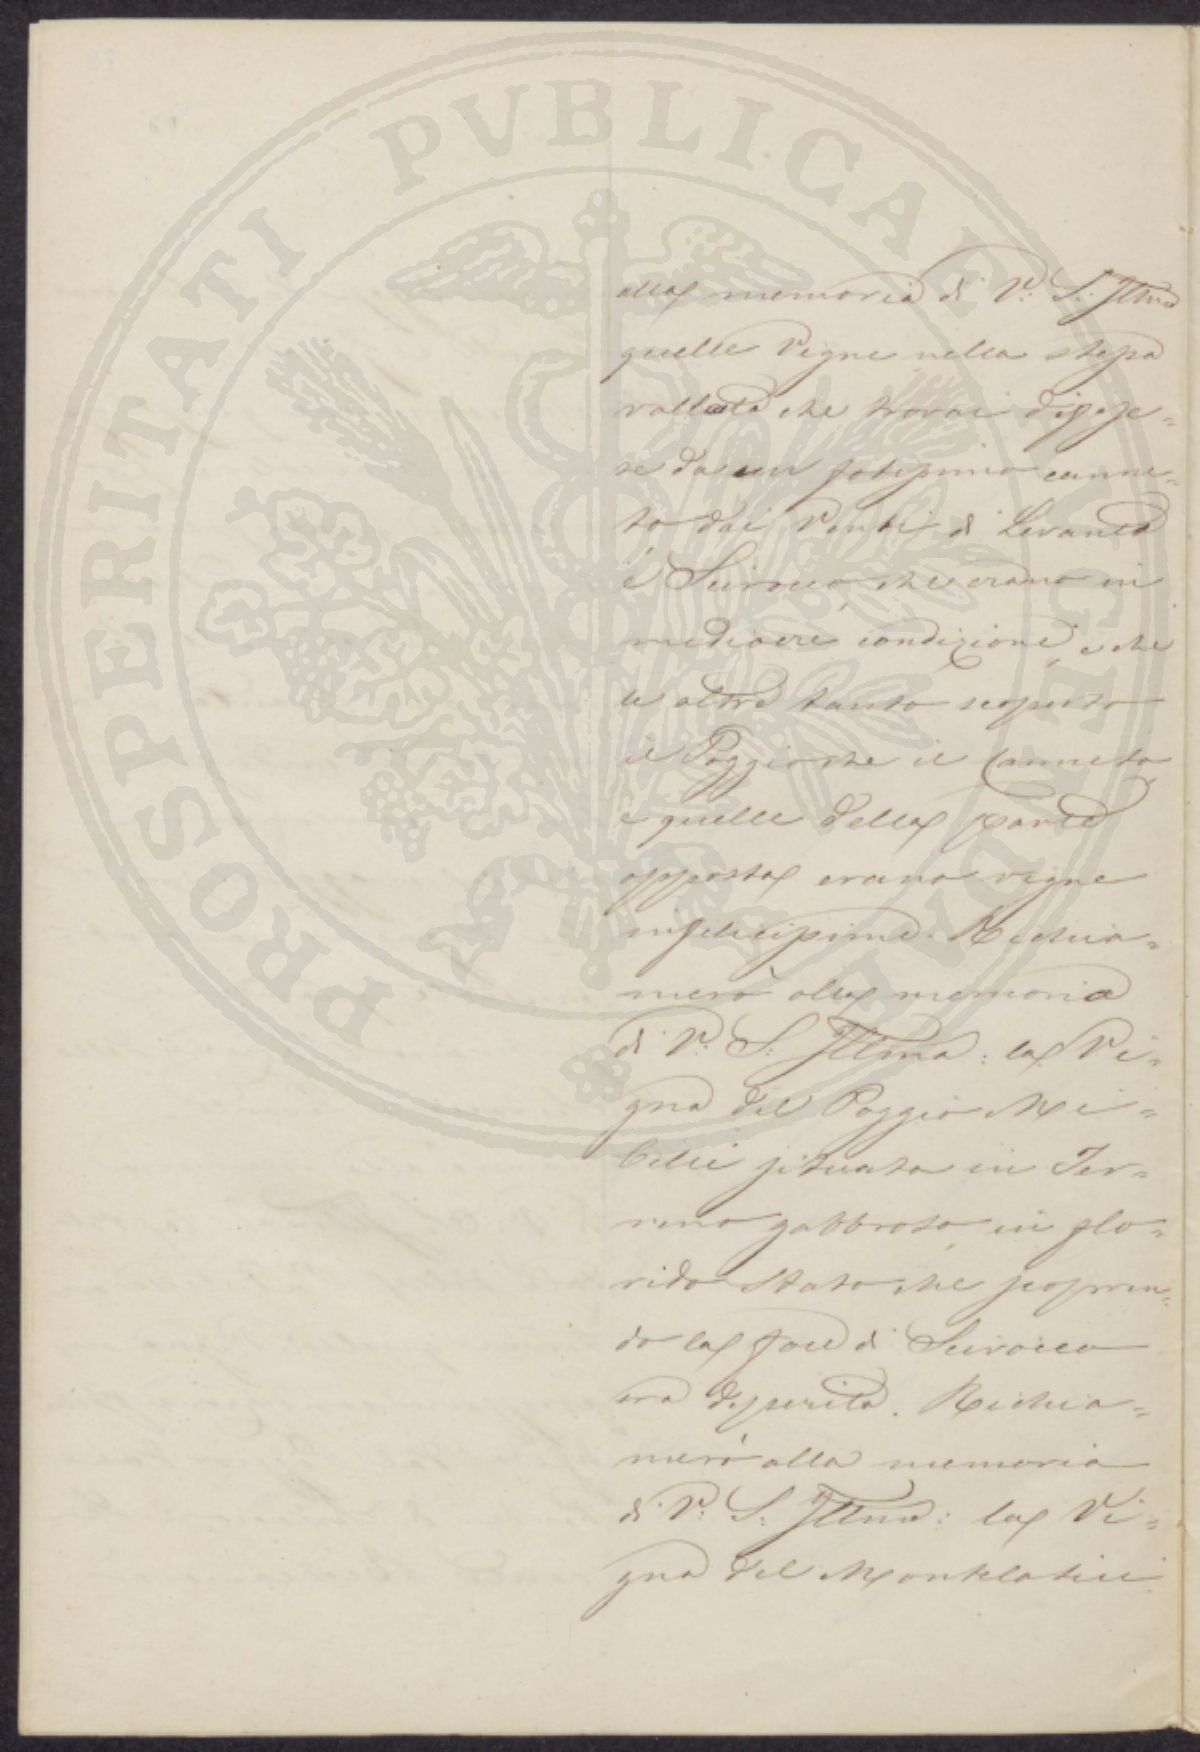 PROSPERITATI PVBLICAE AVGENDAE
alla memoria di V: S: Illma
quelle Vigne nella stessa
vallata che trovai difese-
se da un foltissimo canne-
to dai Venti di Levante
e Scirocco, che erano in
mediocre condizione, e che
le altre tanto scoperto
il Poggio che il Canneto
e quelle della parte
opposta erano vigne
infelicissime. Richia-
merò alla memoria
di V: S: Illma: la Vi-
gna del Poggio Mi-
situata in Ter-
reno gabbroso, in flo-
rido Stato che scopren-
do la foce di Scirocco
era deperita. Richia-
merò alla memoria
di V: S: Illma: la Vi-
gna del Montelatici